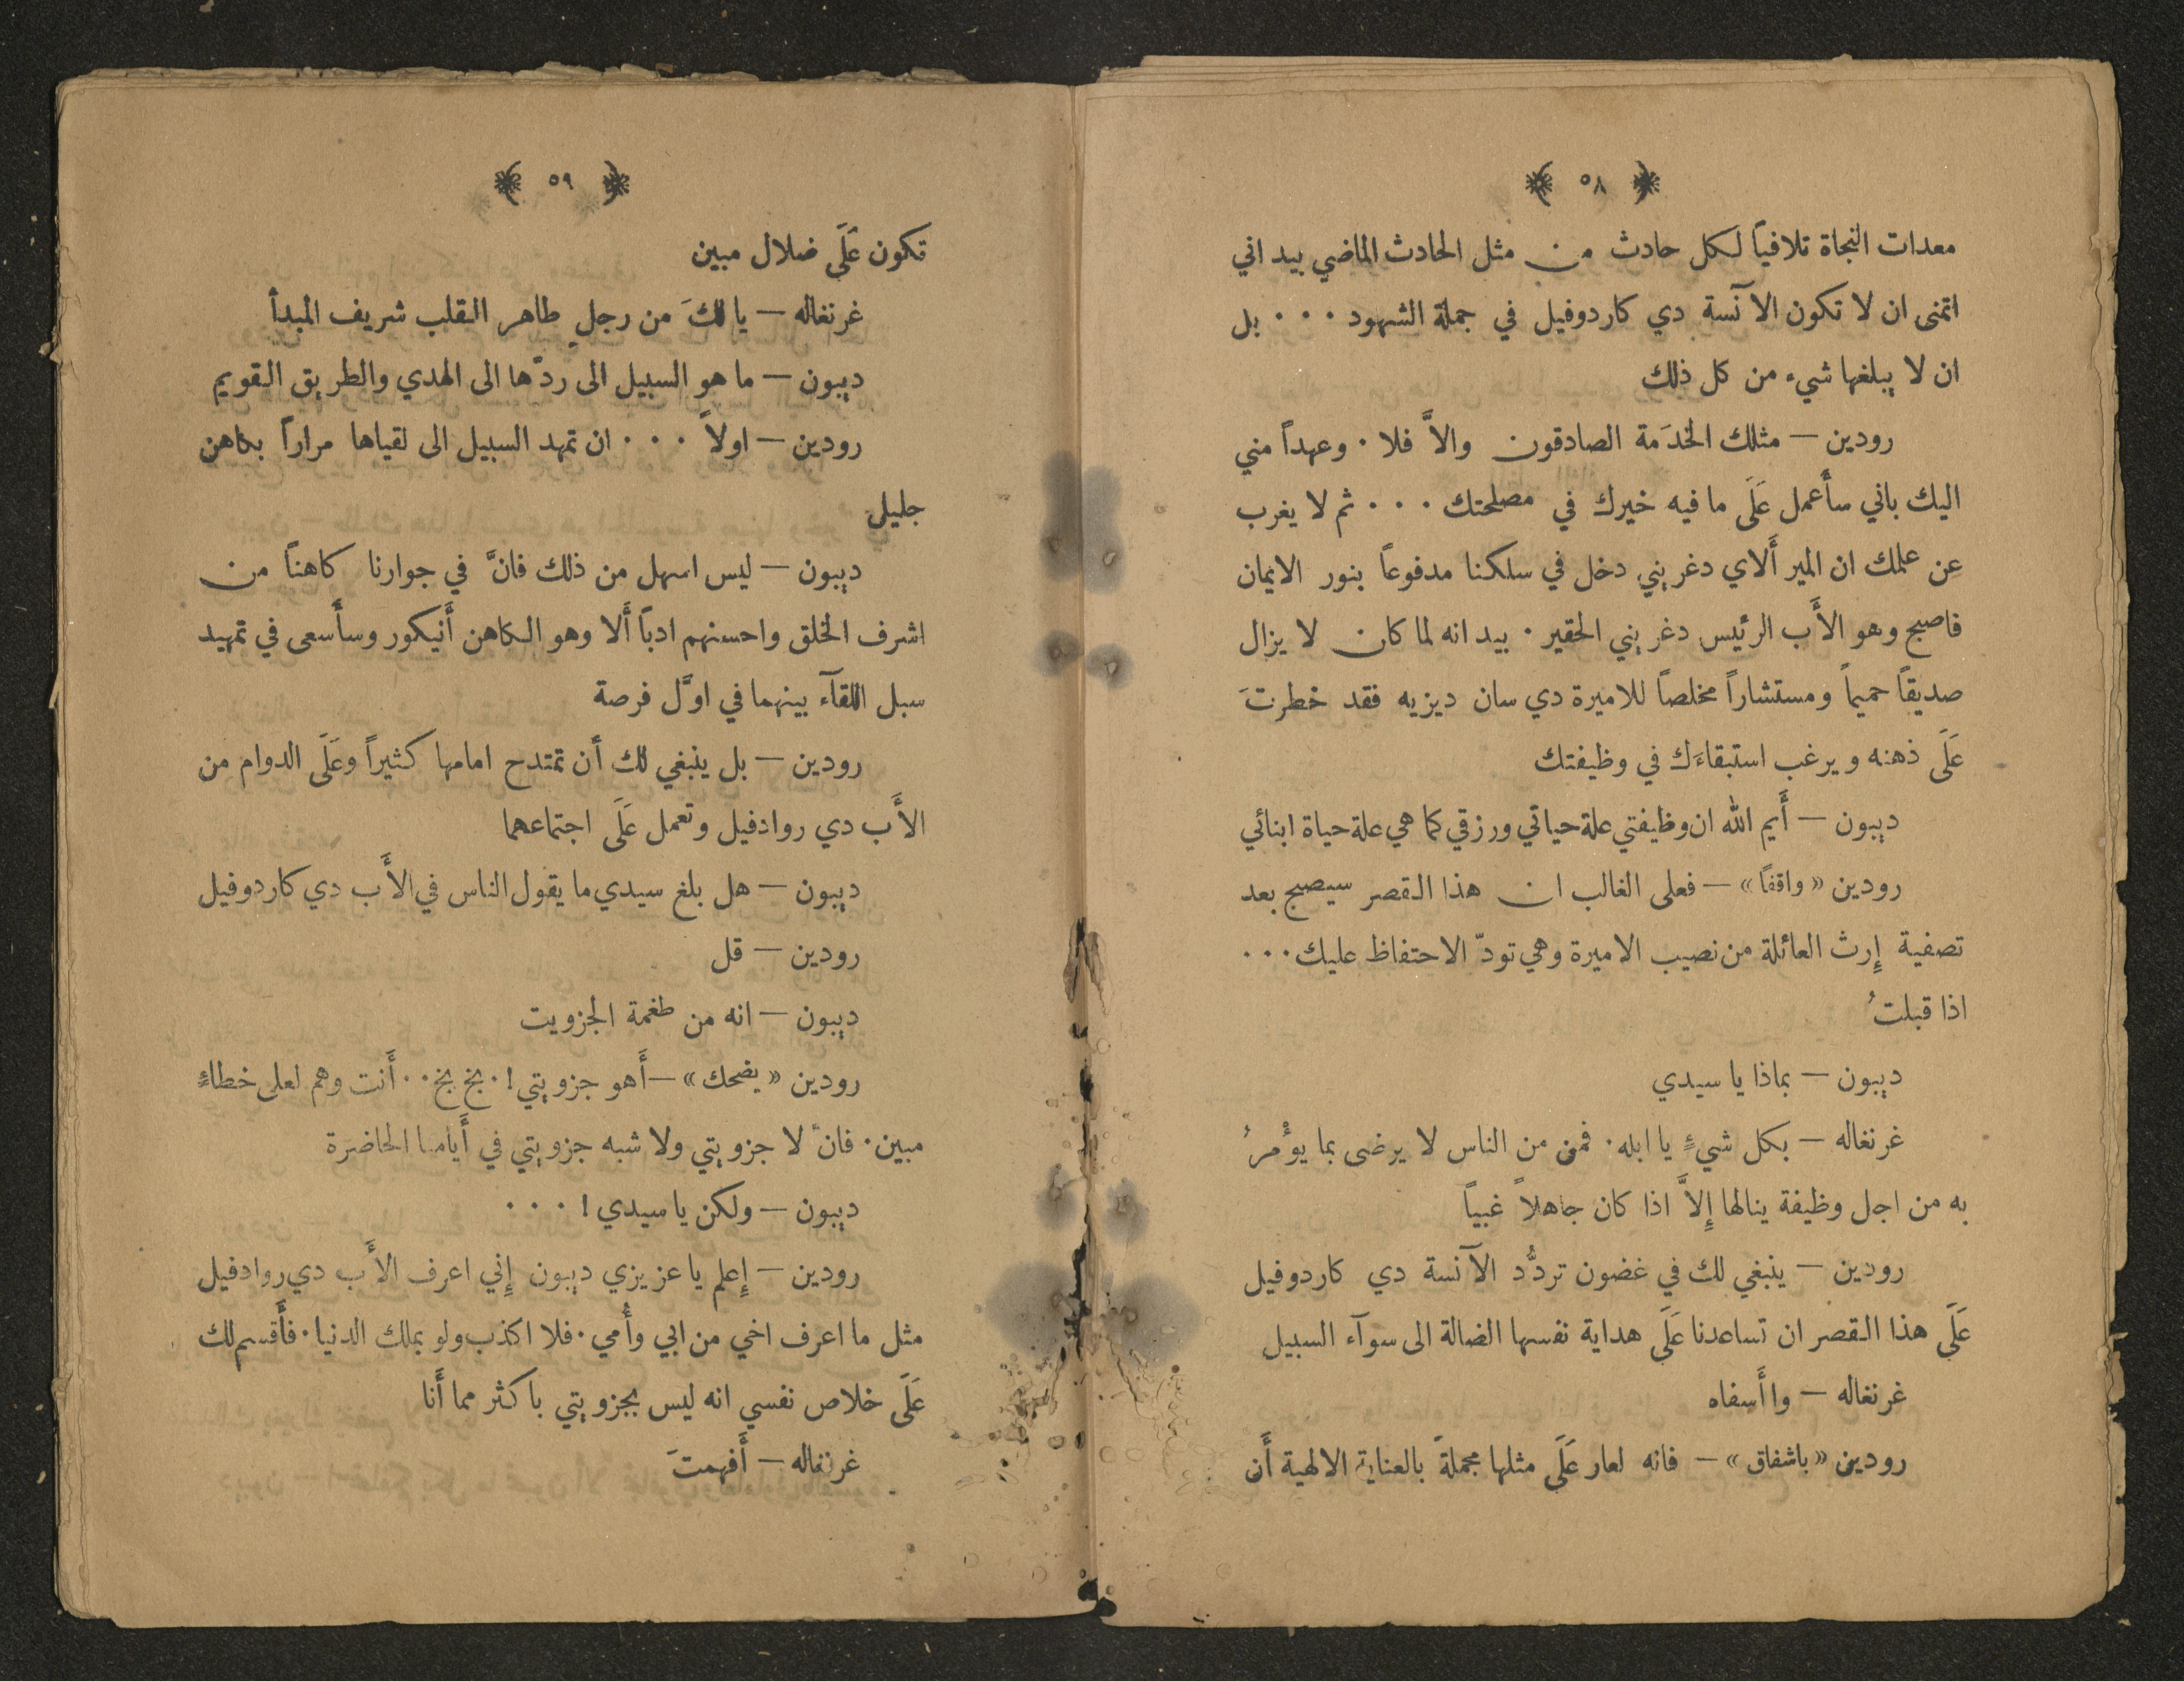 ٥٨
معدات النجاة تلافياً لكل حادث من مثل الحادث الماضي بيد اني
اتمنى ان لا تكون الآنسة دي كاردوفيل في جملة الشهود ٠٠٠ بل
ان لا يبلغها شيء من كل ذلك
رودين — مثلك الخدَمة الصادقون والاَّ فلا ٠ وعهداً مني
اليك باني سأَعمل عَلَى ما فيه خيرك في مصلحتك ٠٠٠ ثم لا يغرب
عن علمك ان المير أَلاي دغريني دخل في سلكنا مدفوعاً بنور الايمان
فاصبح وهو الأَب الرئيس دغريني الحقير ٠ بيد انه لما كان لا يزال
صديقاً حميماً ومستشاراً مخلصاً للاميرة دي سان ديزيه فقد خطرتَ
عَلَى ذهنه ويرغب استبقاءَك في وظيفتك
ديبون — أَيم الله ان وظيفتي علة حياتي ورزقي كما هي علة حياة ابنائي
رودين «واقفاً» — فعلى الغالب ان هذا القصر سيصبح بعد
تصفية إِرث العائلة من نصيب الاميرة وهي تودّ الاحتفاظ عليك ٠٠٠
اذا قبلتُ
ديبون — بماذا يا سيدي
غرنغاله — بكل شيءٍ يا ابله ٠ فمن من الناس لا يرضى بما يوْمرُ
به من اجل وظيفة ينالها إِلاَّ اذا كان جاهلاً غبياً
رودين — ينبغي لك في غضون تردُّد الآنسة دي كاردوفيل
عَلَى هذا القصر ان تساعدنا عَلَى هداية نفسها الضالة الى سوآء السبيل
غرنغاله — وا أَسفاه
رودين «باشفاق» — فانه لعار عَلَى مثلها مجملةً بالعناية الالهية أَن
٥٩
تكون عَلَى ضلال مبين
غرنغاله — يا لكَ من رجلٍ طاهر القلب شريف المبدأ
ديبون — ما هو السبيل الى ردّها الى الهدي والطريق القويم
رودين — اولاً ٠٠٠ ان تمهد السبيل الى لقياها مراراً بكاهن
جليل
ديبون — ليس اسهل من ذلك فانَّ في جوارنا كاهناً من
اشرف الخلق واحسنهم ادباً أَلا وهو الكاهن أَنيكور وسأَسعى في تمهيد
سبل اللقآء بينهما في اوَّل فرصة
رودين — بل ينبغي لك أن تمتدح امامها كثيراً وعَلَى الدوام من
الأَب دي روادفيل وتعمل عَلَى اجتماعهما
ديبون — هل بلغ سيدي ما يقول الناس في الأَب دي كاردوفيل
رودين — قل
ديبون — انه من طغمة الجزويت
رودين «يضحك» — أَهو جزويتي ! ٠ بخ بخ ٠٠ أَنت وهم لعلى خطاءٍ
مبين ٠ فانّ لا جزويتي ولا شبه جزويتي في أَيامنا الحاضرَة
ديبون — ولكن يا سيدي ! ٠٠٠
رودين — إِعلم يا عزيزي ديبون إِني اعرف الأَب دي روادفيل
مثل ما اعرف اخي من ابي وأُمي ٠ فلا اكذب ولو بملك الدنيا ٠ فأَقسم لك
عَلَى خلاص نفسي انه ليس بجزويتي باكثر مما أَنا
غرنغاله — أَفهمتَ